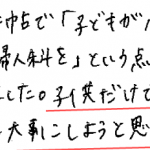 中占で「子どもが
婦人科を」という点
した。子供だけで
大事にしようと思